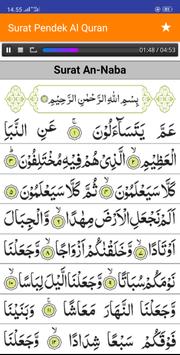 14.55
Surat Pendek Al Quran
01:48 / 04:53
Surat An-Naba
بِسْمِ اللّٰهِ الرَّحْمٰنِ الرَّحِيْمِ
عَمَّ يَتَسَاۤءَلُوْنَ ۝١ عَنِ النَّبَاِ
الْعَظِيْمِ ۝٢ الَّذِيْ هُمْ فِيْهِ مُخْتَلِفُوْنَ ۝٣
كَلَّا سَيَعْلَمُوْنَ ۝٤ ثُمَّ كَلَّا سَيَعْلَمُوْنَ ۝٥
اَلَمْ نَجْعَلِ الْاَرْضَ مِهٰدًا ۝٦ وَّالْجِبَالَ
اَوْتَادًا ۝٧ وَّخَلَقْنٰكُمْ اَزْوَاجًا ۝٨ وَّجَعَلْنَا
نَوْمَكُمْ سُبَاتًا ۝٩ وَّجَعَلْنَا الَّيْلَ لِبَاسًا ۝١٠
وَّجَعَلْنَا النَّهَارَ مَعَاشًا ۝١١ وَّبَنَيْنَا
فَوْقَكُمْ سَبْعًا شِدَادًا ۝١٢ وَّجَعَلْنَا